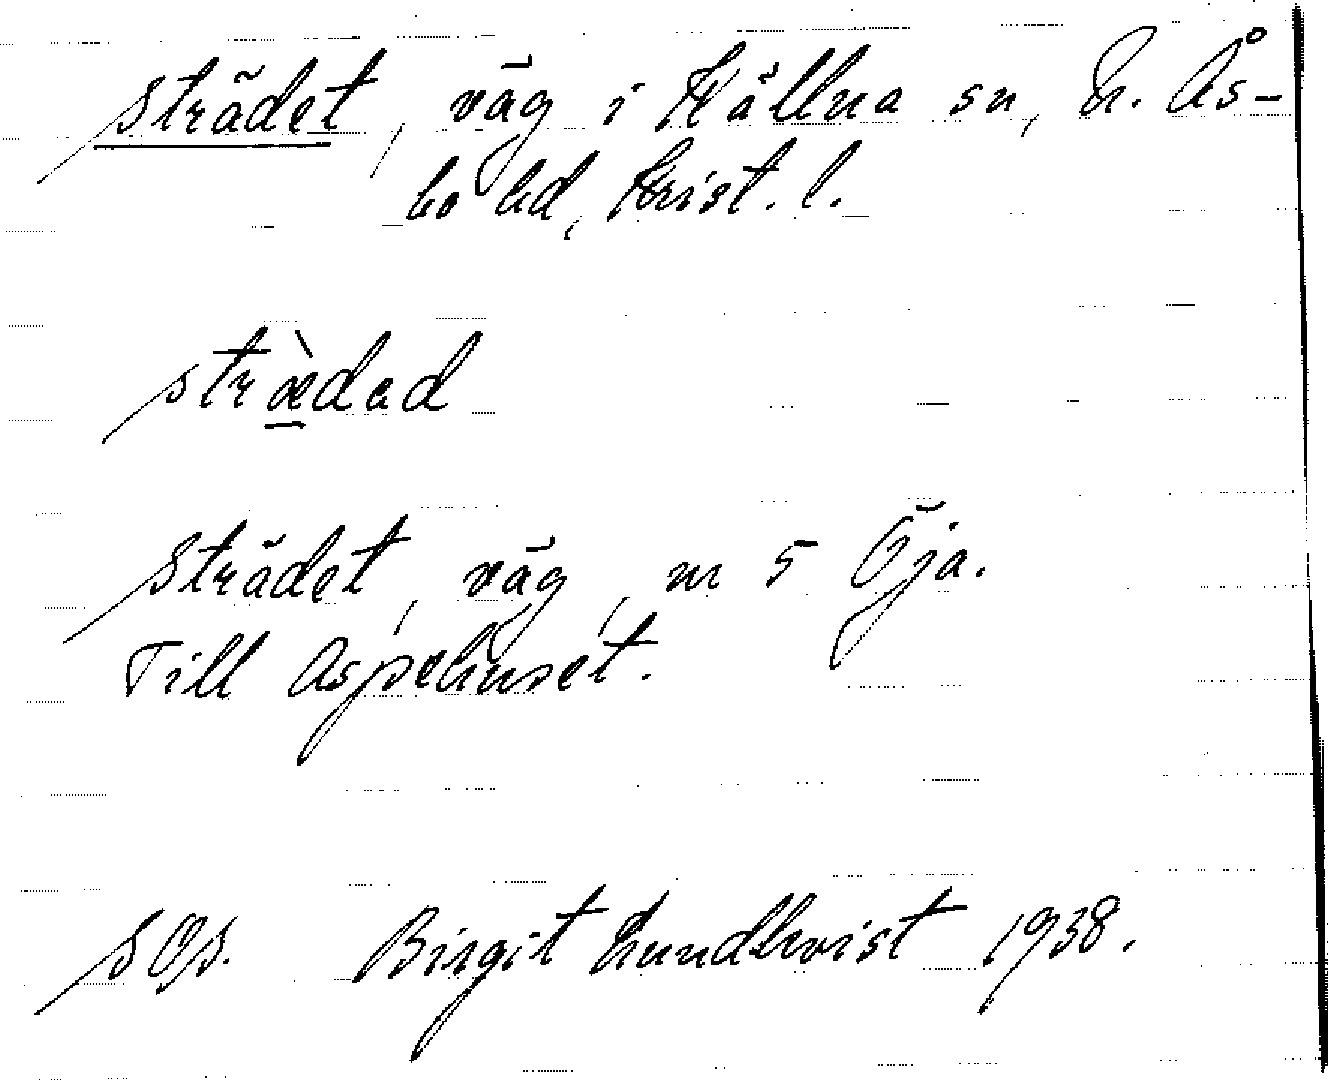 Strädet, väg i Källna sn, N. Ås-
bo hd, Krist. l.
stræ̀dad
Strädet, väg, nr 5 Öja.
Till Aspehuset.
SOS. Birgit Lundkvist 1938.